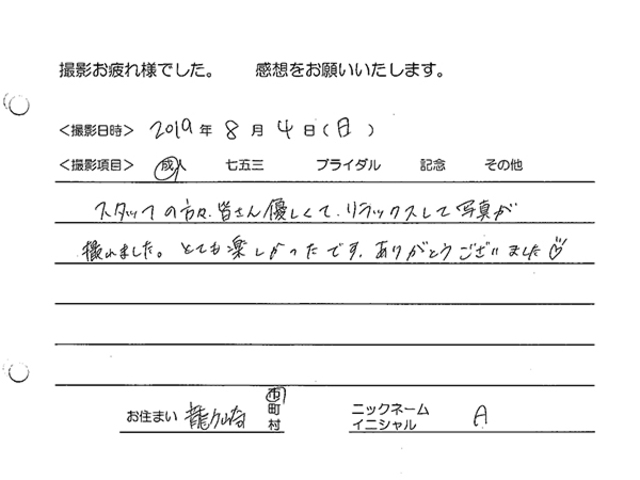 撮影お疲れ様でした。　感想をお願いいたします。
＜撮影日時＞ 2019年 8月 4日(日)
＜撮影項目＞ 成人 七五三 ブライダル 記念 その他
スタッフの方々、皆さん優しくて、リラックスして写真が
撮れました。とても楽しかったです。ありがとうございました♡
お住まい 龍ケ崎 市町村
ニックネーム イニシャル A